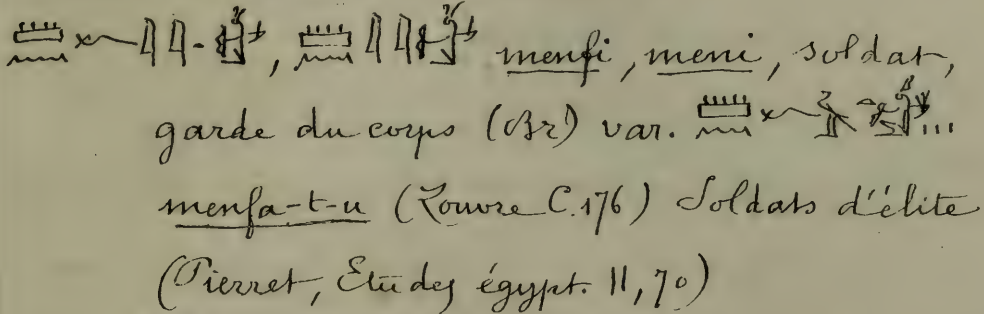 𓏠𓈖𓆑𓇋𓇋, 𓏠𓈖𓇋𓇋 menfi, meni, soldat,
garde du corps (Br) var. 𓏠𓈖𓆑
menfa-t-u (Louvre C.176) Soldats d'élite
(Pierret, Etudes égypt. II, 70)